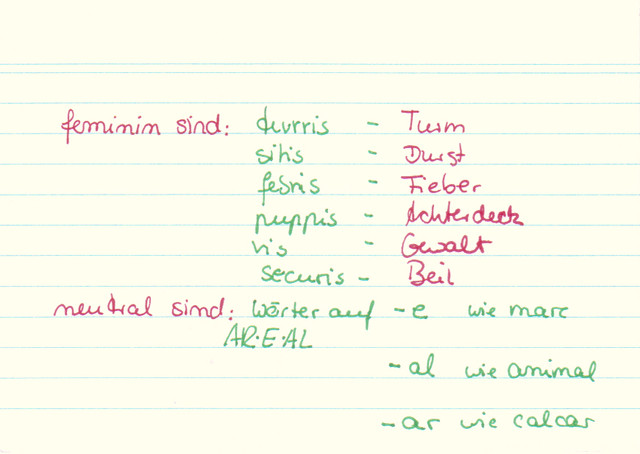 feminin sind: turris - Turm
sitis - Durst
febris - Fieber
puppis - Achterdeck
vis - Gewalt
securis - Beil
neutral sind: Wörter auf -e wie mare
AR·E·AL
-al wie animal
-ar wie calcar